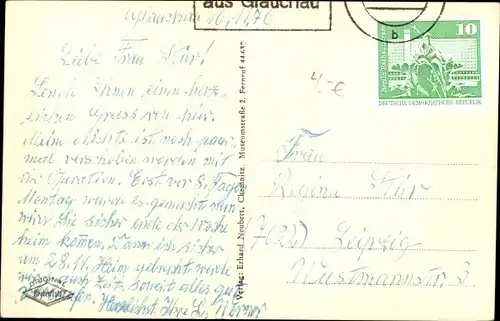 aus Glauchau
Glauchau 16.11.76
10
DEUTSCHE DEMOKRATISCHE REPUBLIK
b
4,-€
Liebe Frau Kür!
Sende Ihnen einen herz-
lichen Gruss von hier.
Meine Nichte ist noch paar
mal verschoben worden mit
der Operation. Erst vor 8 Tagen
Montag wurde es gemacht nun
wird Sie sicher ende der Woche
heim kommen. Wenn ich sicher
am 28.11. Heim gebracht werde
noch Zeit, soweit alles gut
Herzlichst Ihre L. Werner
Verlag: Erhard Neubert, Chemnitz, Museumstraße 2, Fernruf 44632
Frau
Regina Kür
7021 Leipzig
Wustmannstr. 3